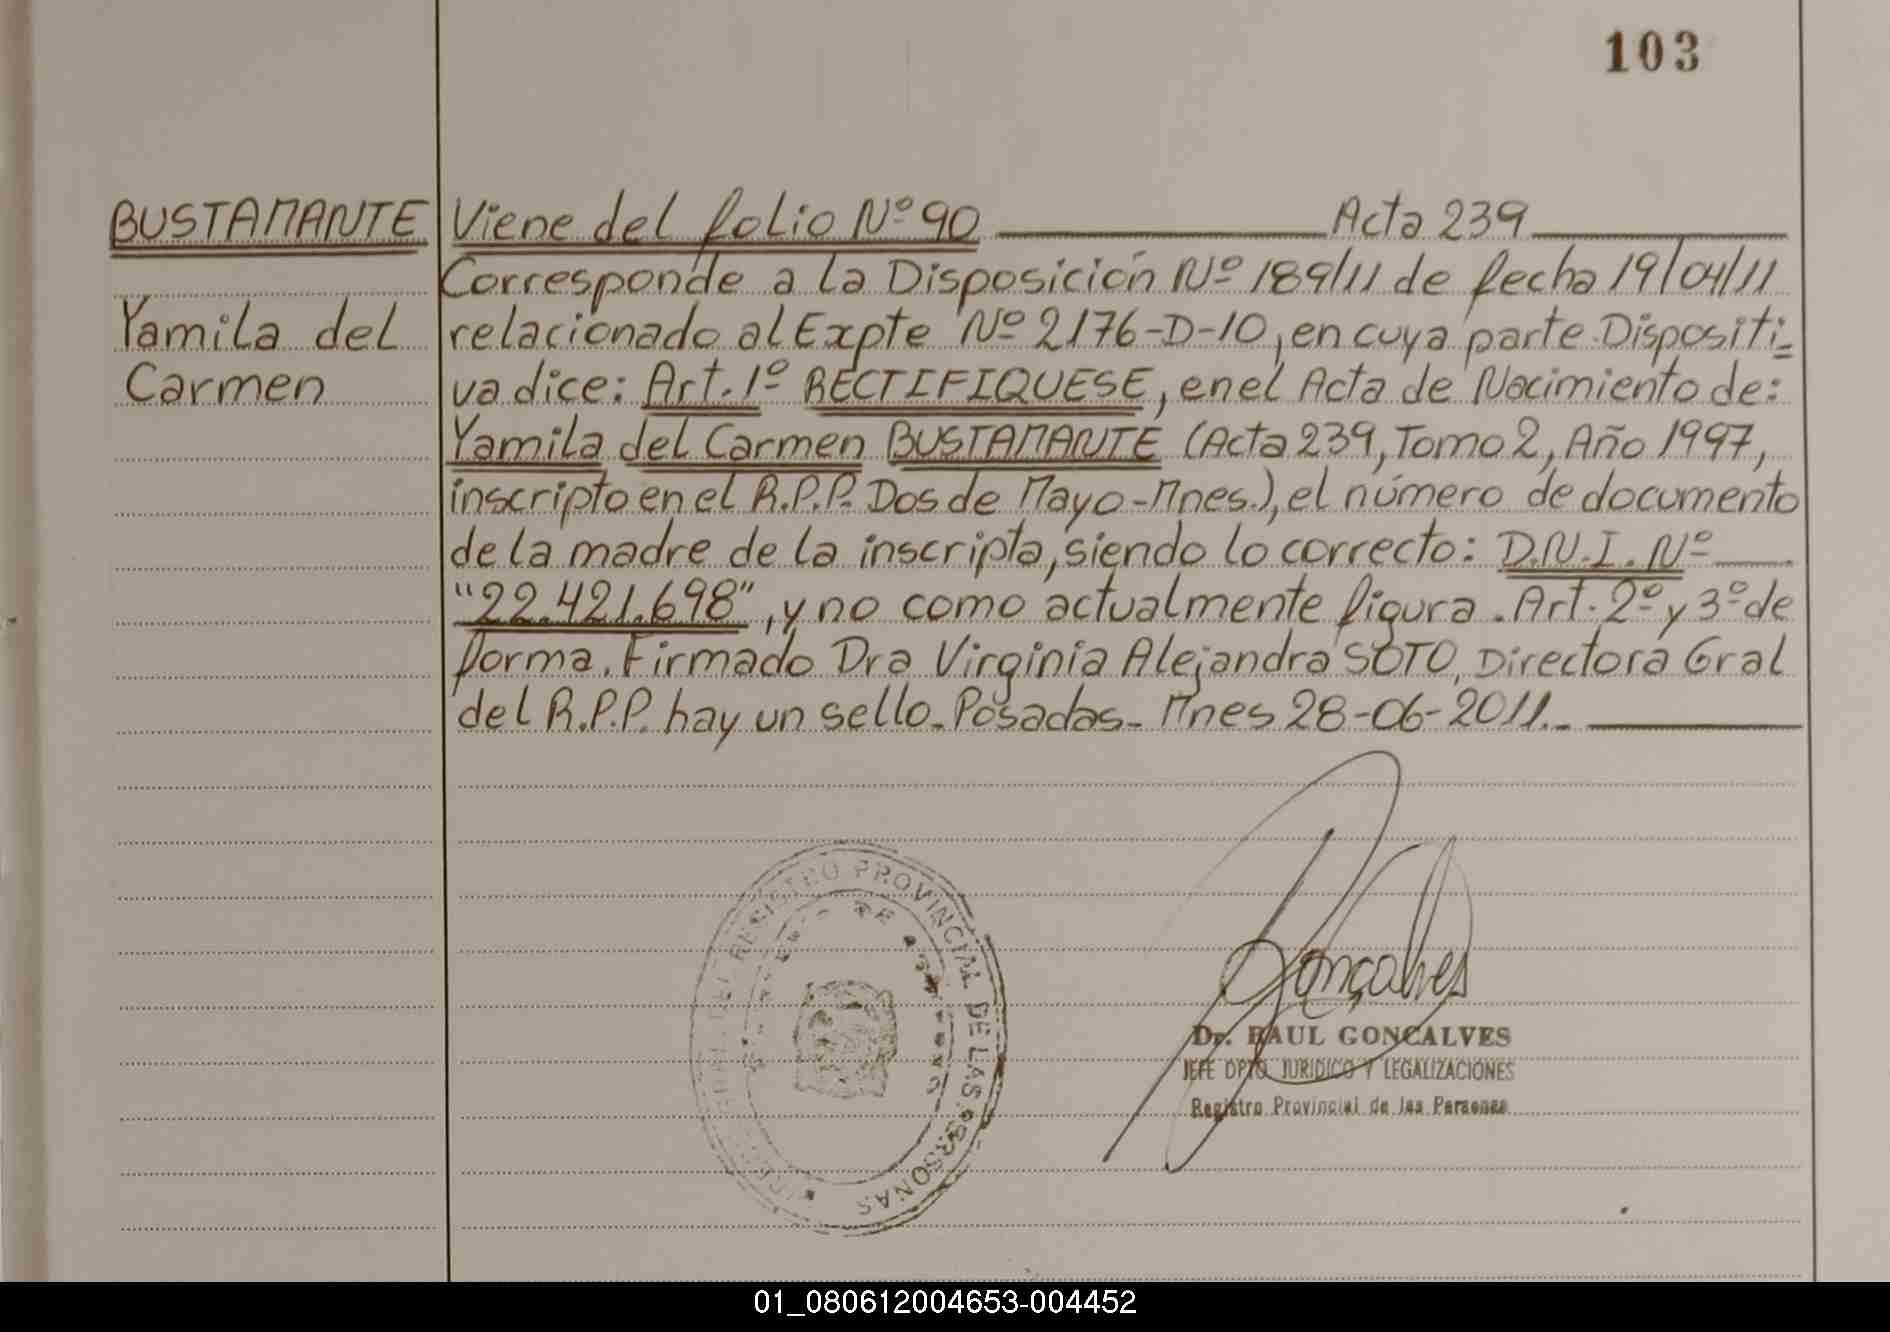 103
BUSTAMANTE
Yamila del
Carmen
Viene del folio Nº 90 Acta 239
Corresponde a la Disposición Nº 189/11 de fecha 19/04/11
relacionado al Expte Nº 2176-D-10, en cuya parte Dispositi=
va dice: Art. 1º RECTIFIQUESE, en el Acta de Nacimiento de:
Yamila del Carmen BUSTAMANTE (Acta 239, Tomo 2, Año 1997,
inscripto en el R.P.P. Dos de Mayo-Mnes.), el número de documento
de la madre de la inscripta, siendo lo correcto: D.N.I. Nº
"22.421.698", y no como actualmente figura. Art. 2º y 3º de
forma. Firmado Dra Virginia Alejandra SOTO, Directora Gral
del R.P.P. hay un sello-Posadas- Mnes 28-06-2011.-
REGISTRO PROVINCIAL DE LAS PERSONAS
Gonçalves
Dr. RAUL GONCALVES
JEFE DPTO. JURIDICO Y LEGALIZACIONES
Registro Provincial de las Personas
01_080612004653-004452